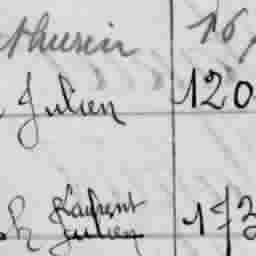 thurin 167
Julien 120
Laurent
h Julien 173